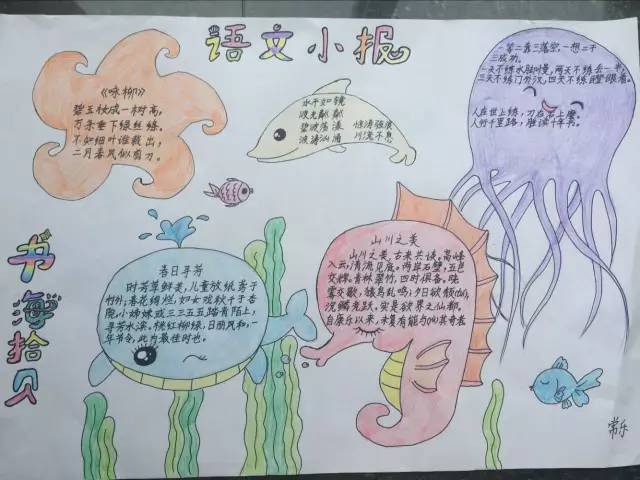 语文小报
《咏柳》
碧玉妆成一树高,
万条垂下绿丝绦。
不知细叶谁裁出,
二月春风似剪刀。
水平如镜
波光粼粼
碧波荡漾
波涛汹涌
惊涛骇浪
川流不息
一等二靠三落空,一想二干
三成功。
一天不练手脚慢,两天不练丢一半,
三天不练门外汉,四天不练瞪眼看。
人在世上练,刀在石上磨。
人行千里路,胜读十年书。
书海拾贝
春日寻芳
时芳草鲜美,儿童放纸鸢于
村外,春花绚烂,如女戏秋千于杏
院,小姊妹或三三五五踏青陌上,
寻芳水滨。桃红柳绿,日丽风和,一
年节令,此为最佳时也。
山川之美
山川之美,古来共谈。高峰
入云,清流见底。两岸石壁,五色
交辉。青林翠竹,四时俱备。晓
雾交歇,猿鸟乱鸣;夕日欲颓(tuí),
沉鳞竞跃。实是欲界之仙都。
自康乐以来,未复有能与(yù)其奇者
常乐